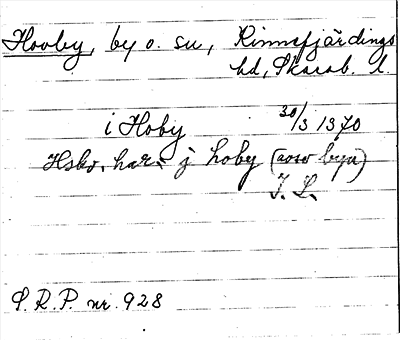 Hovby, by o. sn, Kinnefjärdings
hd, Skarab. l.
i Hoby 30/3 1370
Hsbo. har. j hoby (aosv byn)
I. L.
S. R. P. nr. 928